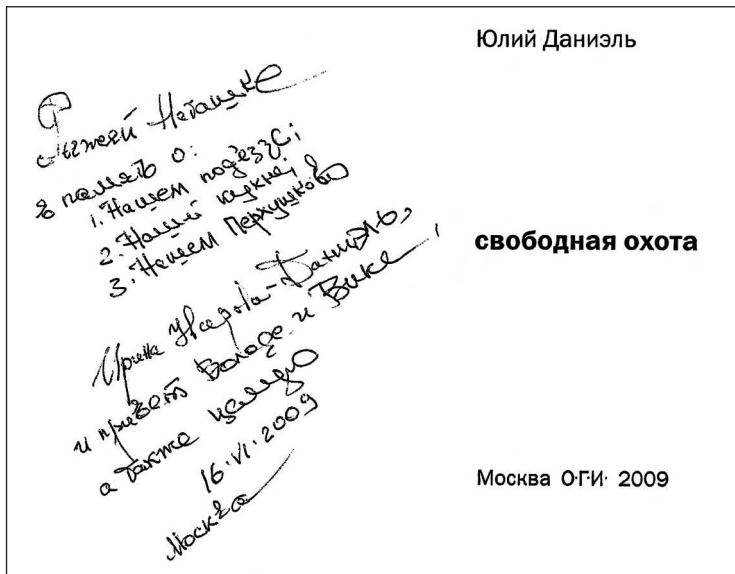 Рыжей Наташке
в память о:
1. Нашем подъезде;
2. Нашей кухне;
3. Нашем Перхушково
Ирина Уварова-Даниэль,
и привет Володе и Вике,
а также целую
16.VI.2009
Москва
Юлий Даниэль
свободная охота
Москва О·Г·И· 2009